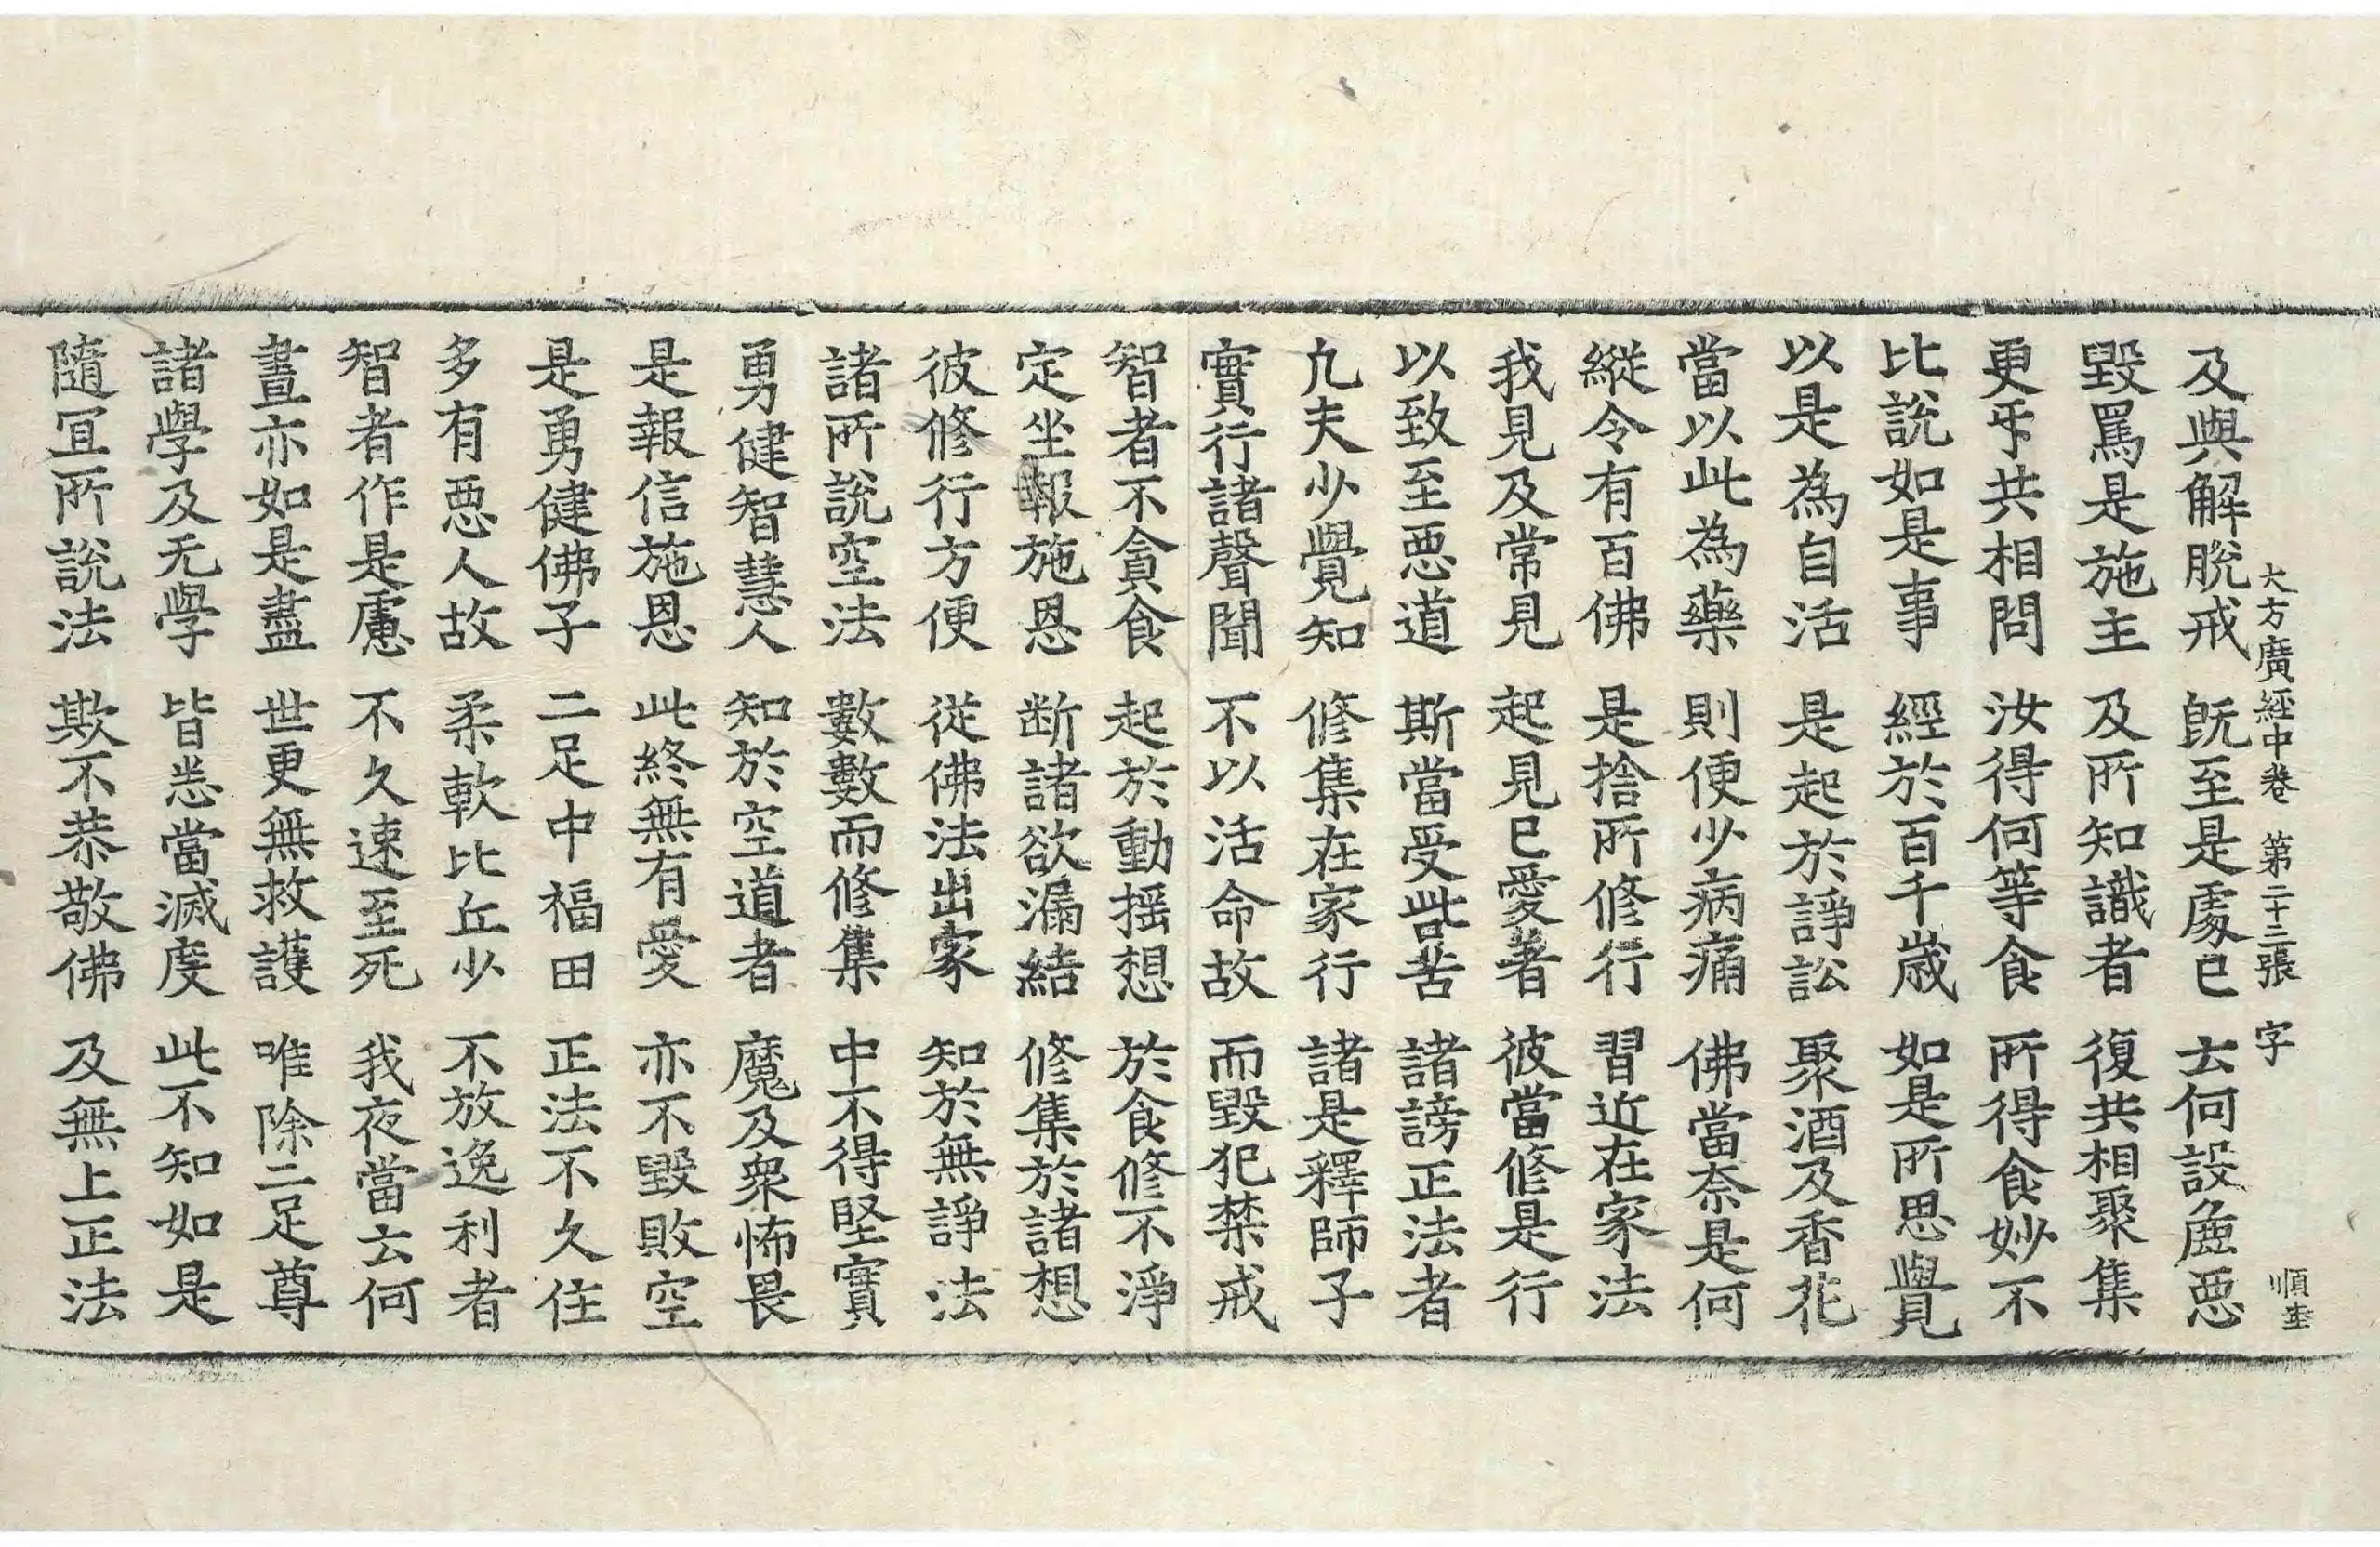 大方廣經中卷 第二十三張 字 順奎
及與解脫戒 旣至是處已 去何設麁惡
毀罵是施主 及所知識者 復共相聚集
更㸦共相問 汝得何等食 所得食妙不
比說如是事 經於百千歲 如是所思覺
以是為自活 是起於諍訟 聚酒及香花
當以此為藥 則便少病痛 佛當柰是何
縱令有百佛 是捨所修行 習近在家法
我見及常見 起見已愛著 彼當修是行
以致至惡道 斯當受此苦 諸謗正法者
凢夫少覺知 修集在家行 諸是釋師子
實行諸聲聞 不以活命故 而毀犯禁戒
智者不貪食 起於動搖想 於食修不淨
定坐報施恩 断諸欲漏結 修集於諸想
彼修行方便 從佛法出家 知於無諍法
諸所說空法 數數而修集 中不得堅實
勇健智慧人 知於空道者 魔及衆怖畏
是報信施恩 此終無有愛 亦不毀敗空
是勇健佛子 二足中福田 正法不久住
多有惡人故 柔軟比丘少 不放逸利者
智者作是慮 不久速至死 我夜當去何
晝亦如是盡 世更無救護 唯除二足尊
諸學及无學 皆悉當滅度 此不知如是
隨冝所說法 欺不恭敬佛 及無上正法